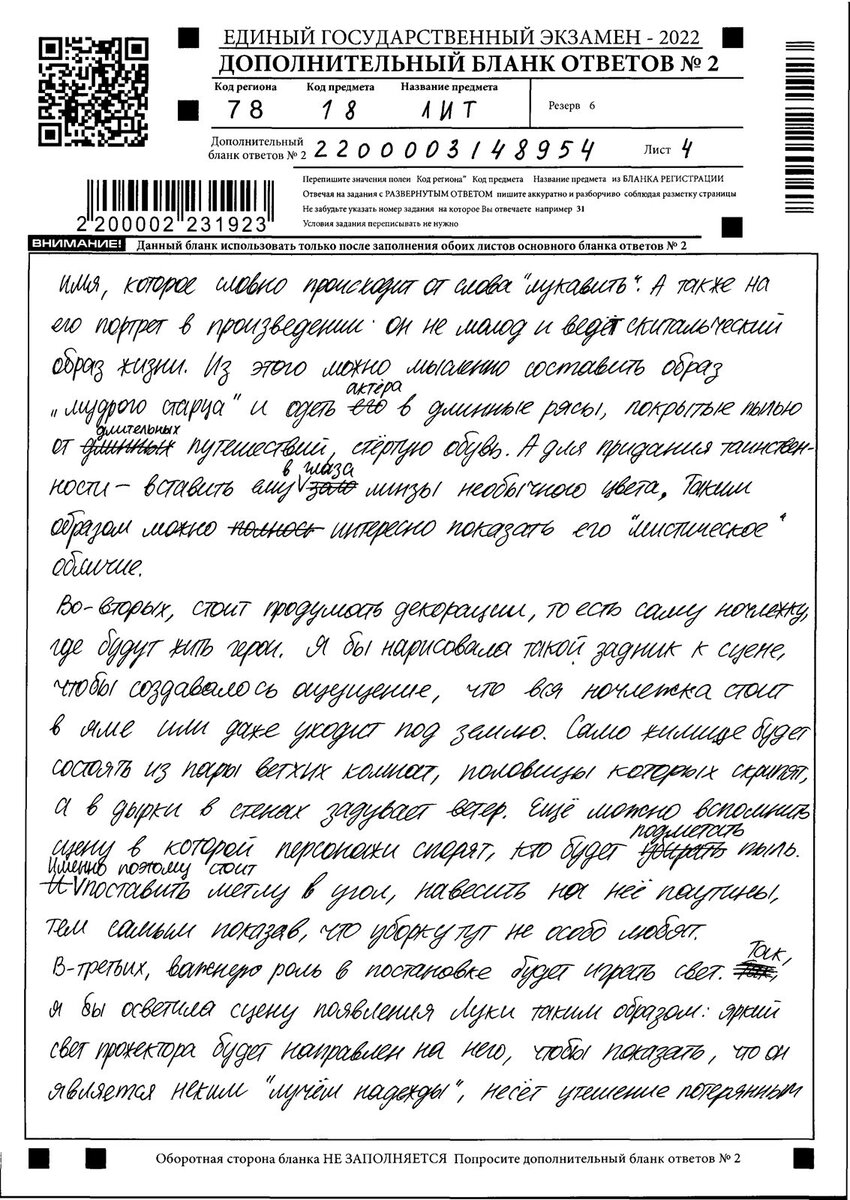 ЕДИНЫЙ ГОСУДАРСТВЕННЫЙ ЭКЗАМЕН - 2022
ДОПОЛНИТЕЛЬНЫЙ БЛАНК ОТВЕТОВ № 2
Код региона Код предмета Название предмета
78 18 ЛИТ Резерв 6
Дополнительный бланк ответов № 2 2200003148954 Лист 4
Перепишите значения полей Код региона" Код предмета Название предмета из БЛАНКА РЕГИСТРАЦИИ
Отвечая на задания с РАЗВЕРНУТЫМ ОТВЕТОМ пишите аккуратно и разборчиво соблюдая разметку страницы
Не забудьте указать номер задания на которое Вы отвечаете например 31
Условия задания переписывать не нужно
2 200002 231923
ВНИМАНИЕ! Данный бланк использовать только после заполнения обоих листов основного бланка ответов № 2
имя, которое словно происходит от слова "лукавить". А также на
его портрет в произведении: он не молод и ведёт скитальческий
образ жизни. Из этого можно мысленно составить образ
„мудрого старца" и одеть его актёра в длинные рясы, покрытые пылью
от длинных длительных путешествий, стёртую обувь. А для придания таинствен-
ности – вставить ему в глаза линзы необычного цвета. Таким
образом можно полнось интересно показать его "мистическое"
обличие.
Во-вторых, стоит продумать декорации, то есть саму ночлежку,
где будут жить герои. Я бы нарисовала такой задник к сцене,
чтобы создавалось ощущение, что вся ночлежка стоит
в яме или даже уходит под землю. Само жилище будет
состоять из пары ветхих комнат, половицы которых скрипят,
а в дырки в стенах задувает ветер. Ещё можно вспомнить
сцену в которой персонажи спорят, кто будет убирать подметать пыль.
И Именно поэтому стоит поставить метлу в угол, навесить на неё паутины,
тем самым показав, что уборку тут не особо любят.
В-третьих, важную роль в постановке будет играть свет. Так,
я бы осветила сцену появления Луки таким образом: яркий
свет прожектора будет направлен на него, чтобы показать, что он
является неким "лучём надежды", несёт утешение потерянным
Оборотная сторона бланка НЕ ЗАПОЛНЯЕТСЯ Попросите дополнительный бланк ответов № 2